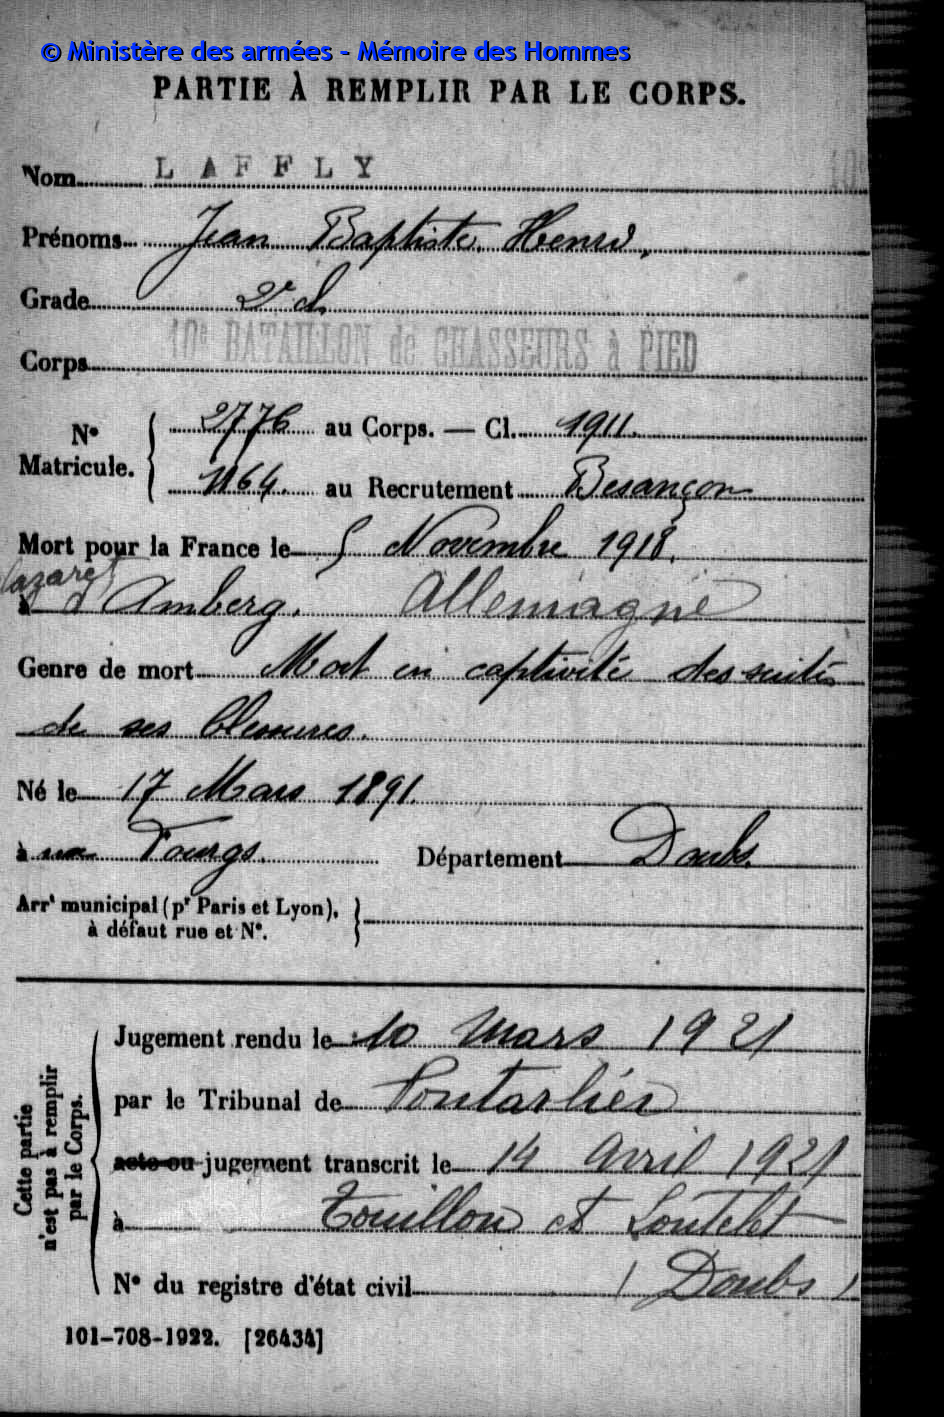 © Ministère des armées - Mémoire des Hommes
PARTIE À REMPLIR PAR LE CORPS.
Nom LAFFLY
Prénoms Jean Baptiste Henri,
Grade 2e cl
10e BATAILLON de CHASSEURS à PIED
Corps
2776 au Corps. — Cl. 1911.
N°
Matricule.
1164. au Recrutement Besançon
Mort pour la France le 5 Novembre 1918.
lazaret
à d'Amberg. Allemagne
Genre de mort Mort en captivité des suites
de ses blessures.
Né le 17 Mars 1891.
à Fourgs. Département Doubs.
Arrt municipal (pr Paris et Lyon),
à défaut rue et N°.
Cette partie
n'est pas à remplir
par le Corps.
Jugement rendu le 10 Mars 1921
par le Tribunal de Pontarlier
acte ou jugement transcrit le 14 Avril 1921
à Touillon et Loutelet
N° du registre d'état civil (Doubs)
101-708-1922. [26434]